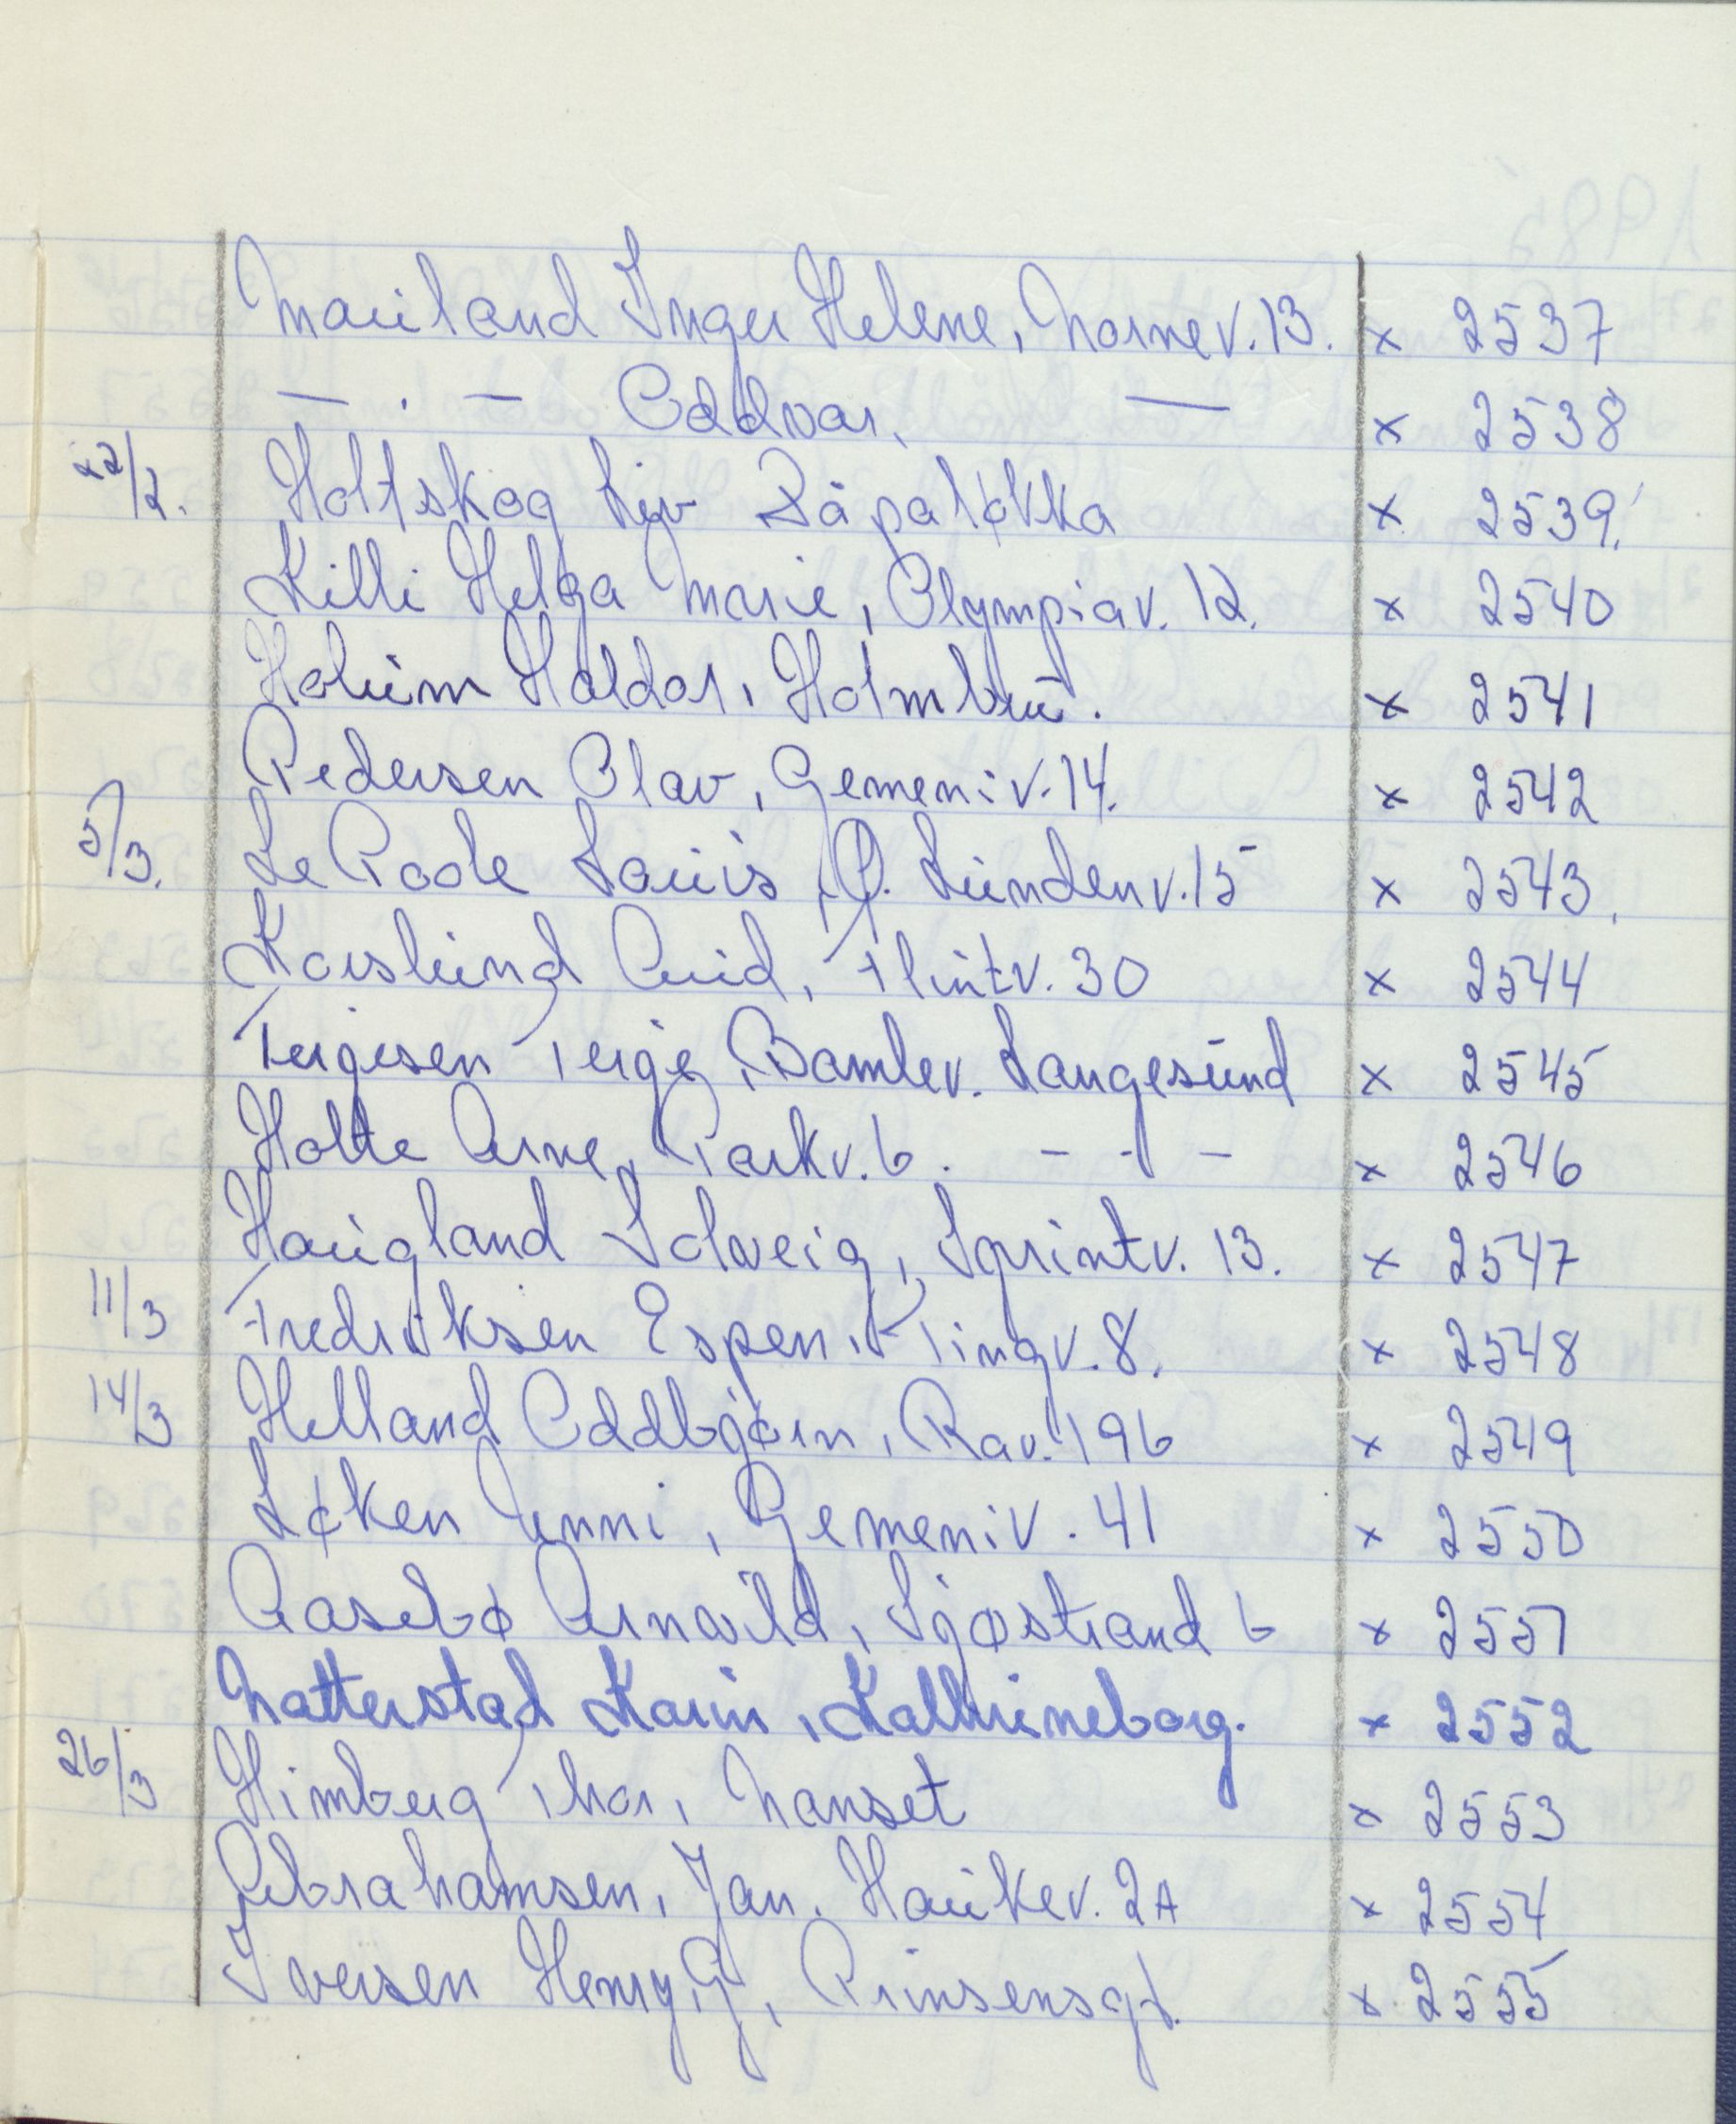 Mauland Inger Helene, Nornev. 13. x 2537
— . — Oddvar. — x 2538
22/2.Holtskog Liv Såpaløkka x 2539.
Killi Helga Marie, Olympiav. 12. x 2540
Holum Haldor, Holmbu. x 2541
Pedersen Olav, Gemeniv. 14. x 2542
5/3. Le Poole Louis, P. Lundenv. 15 x 2543.
Korslund Arid, Flintv. 30 x 2544
Tergesen Terje, Bamlev. Langesund x 2545
Holte Arne, Parkv. 6. - - - x 2546
Haugland Solveig, Sprintv. 13. x 2547
11/3 Fredriksen Espen, Tingv. 8. x 2548
14/3 Helland Oddbjørn, Rav. 196 x 2549
Løken Unni, Gemeniv. 41 x 2550
Aasebø Arnvild, Sjøstrand 6 x 2551
Natterstad Karin, Kathrineborg. x 2552
26/3 Himberg Thor, Nanset x 2553
Abrahamsen, Jan. Haukev. 2A x 2554
Iversen Henry, G, Prinsensgt. x 2555